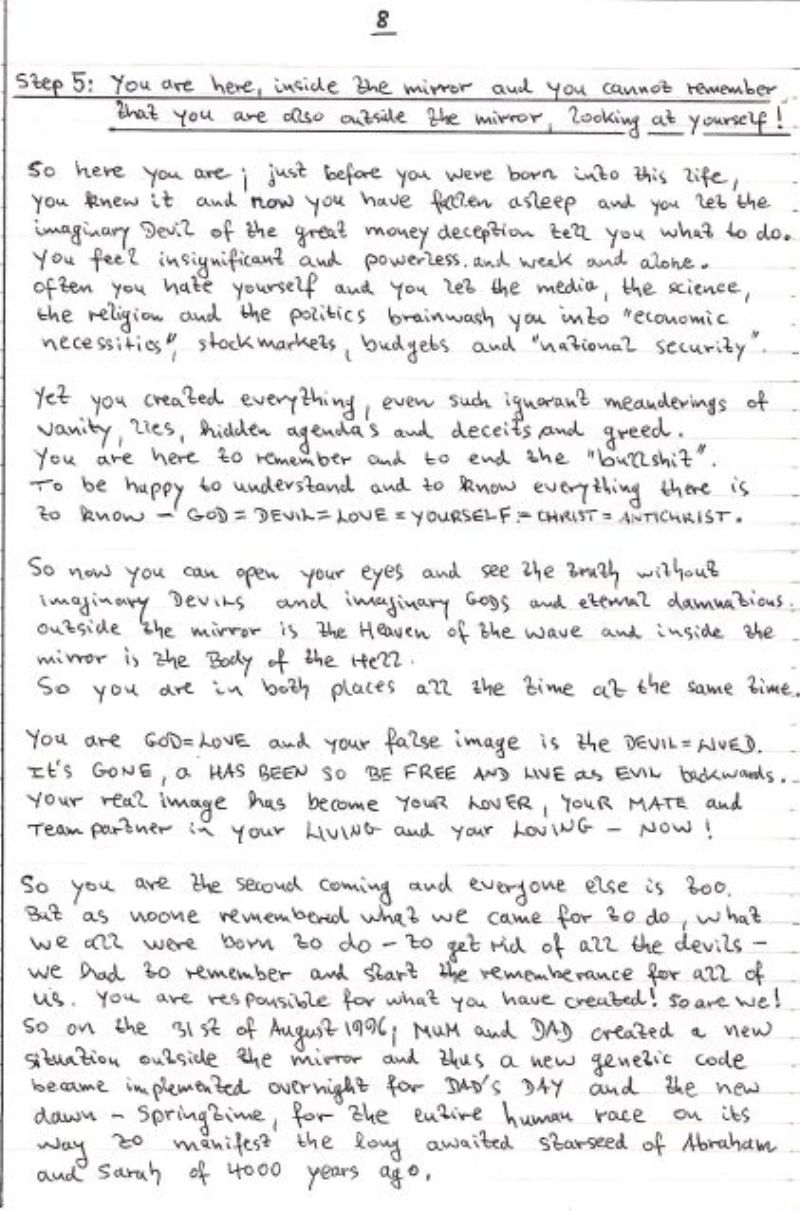 8
Step 5: You are here, inside the mirror and you cannot remember
that you are also outside the mirror, looking at yourself!
So here you are; just before you were born into this life,
you knew it and now you have fallen asleep and you let the
imaginary Devil of the great money deception tell you what to do.
You feel insignificant and powerless. and weak and alone.
often you hate yourself and you let the media, the science,
the religion and the politics brainwash you into "economic
necessities", stockmarkets, budgets and "national security".
Yet you created everything, even such ignorant meanderings of
vanity, lies, hidden agenda's and deceits and greed.
You are here to remember and to end the "bullshit".
To be happy to understand and to know everything there is
to know – GOD = DEVIL = LOVE = YOURSELF = CHRIST = ANTICHRIST.
So now you can open your eyes and see the truth without
imaginary DEVILS and imaginary GODS and eternal damnations.
outside the mirror is the Heaven of the wave and inside the
mirror is the Body of the Hell.
So you are in both places all the time at the same time.
You are GOD=LOVE and your false image is the DEVIL=LIVED.
It's GONE, a HAS BEEN SO BE FREE AND LIVE as EVIL backwards.
Your real image has become YOUR LOVER, YOUR MATE and
Team partner in your LIVING and your LOVING – NOW!
So you are the second coming and everyone else is too.
But as noone remembered what we came for to do, what
we all were born to do – to get rid of all the devils –
we had to remember and start the rememberance for all of
us. You are responsible for what you have created! So are we!
So on the 31st of August 1996; MUM and DAD created a new
situation outside the mirror and thus a new genetic code
became implemented overnight for DAD'S DAY and the new
dawn – Springtime, for the entire human race on its
way to manifest the long awaited starseed of Abraham
and Sarah of 4000 years ago.